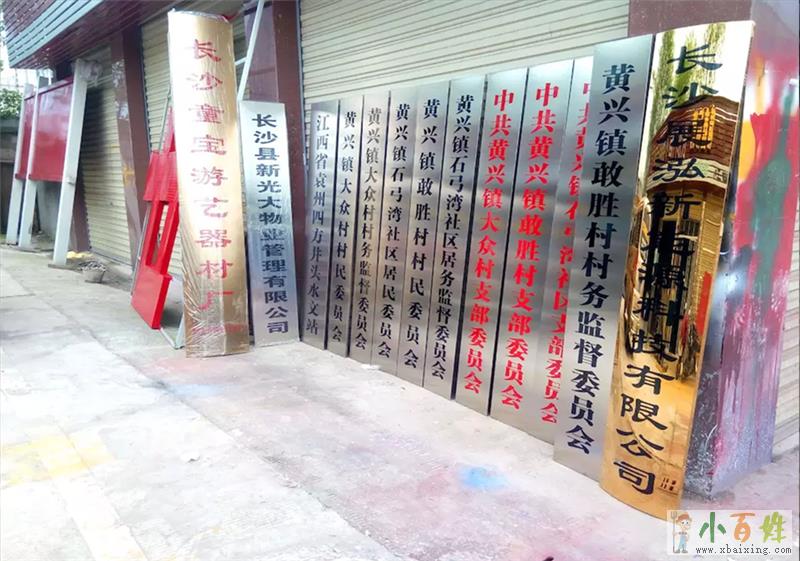 长沙童宝游艺器材厂
长沙县新光大物业管理有限公司
江西省袁州四方井头水文站
黄兴镇大众村村民委员会
黄兴镇大众村村务监督委员会
黄兴镇石弓湾社区居民委员会
黄兴镇敢胜村村民委员会
黄兴镇石弓湾社区居务监督委员会
中共黄兴镇大众村支部委员会
中共黄兴镇敢胜村支部委员会
中共黄兴镇石弓湾社区支部委员会
黄兴镇敢胜村村务监督委员会
长沙晨泓新能源科技有限公司
小百姓
www.xbaixing.com